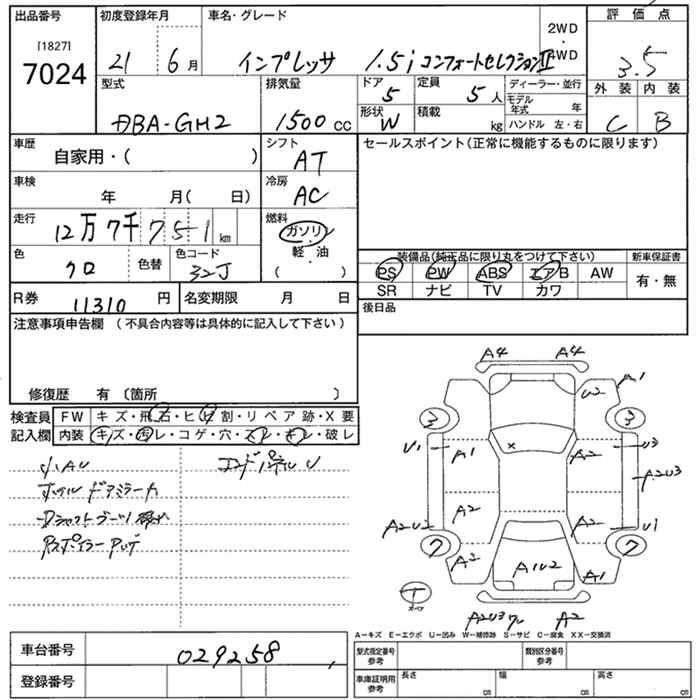 出品番号 初度登録年月 車名・グレード 2WD 評価点
[1827] 7024 21 6月 インプレッサ 1.5i コンフォートセレクションII ・ 4WD 3.5
型式 排気量 ドア 定員 ディーラー・並行 外装 内装
DBA-GH2 1500cc 5 5人 モデル年式 年 C B
形状 W 積載 kg ハンドル 左・右
車歴 自家用・( ) シフト AT セールスポイント(正常に機能するものに限ります)
車検 年 月( 日) 冷房 AC
走行 12万7千751km 燃料 ガソリン
軽・油
( )
色 クロ 色替 色コード 32J
装備品(純正品に限り丸をつけて下さい) 新車保証書
PS PW ABS エアB AW 有・無
SR ナビ TV カワ
R券 11310円 名変期限 月 日 後日品
注意事項申告欄(不具合内容等は具体的に記入して下さい)
修復歴 有〔箇所 〕
検査員 FW キズ・飛石・ヒビ割・リペア跡・X要
記入欄 内装 キズ・汚レ・コゲ・穴・スレ・キレ・破レ
小AU コアパネルU
ホイル ドアミラーA
A4 A4
U2 A1
3 3
U1 A1 × A2 U3
A2U3
A2 A2 U1
A2U2
7 7
A2 A1U2 A1
T
A2U3 A2
A−キズ E−エクボ U−凹み W−補修跡 S−サビ C−腐食 XX−交換済
車台番号 029258
型式指定番号 参考 類別区分番号 参考
登録番号 車庫証明用 参考 長さ cm 幅 cm 高さ cm